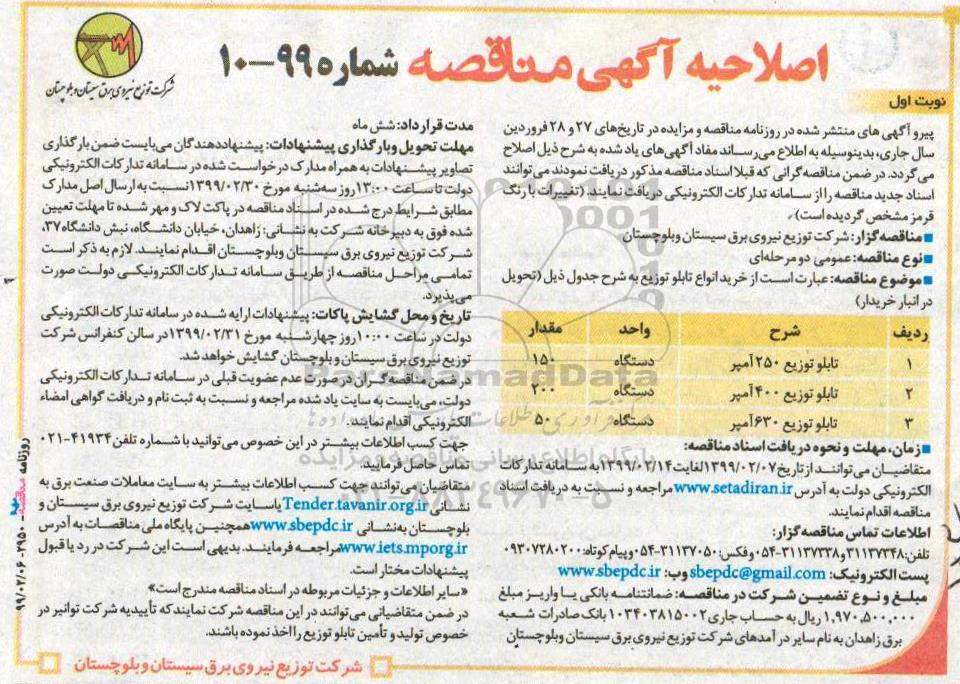 اصلاحیه آگهی مناقصه شماره ۹۹-۱۰
شرکت توزیع نیروی برق سیستان و بلوچستان
نوبت اول
پیرو آگهی های منتشر شده در روزنامه مناقصه و مزایده در تاریخ‌های ۲۷ و ۲۸ فروردین
سال جاری، بدینوسیله به اطلاع می‌رساند مفاد آگهی‌های یاد شده به شرح ذیل اصلاح
می گردد. در ضمن مناقصه گرانی که قبلا اسناد مناقصه مذکور دریافت نمودند می‌توانند
اسناد جدید مناقصه را از سامانه تدارکات الکترونیکی دریافت نمایند. (تغییرات با رنگ
قرمز مشخص گردیده است)
■ مناقصه گزار: شرکت توزیع نیروی برق سیستان وبلوچستان
■ نوع مناقصه: عمومی دو مرحله‌ای
■ موضوع مناقصه: عبارت است از خرید انواع تابلو توزیع به شرح جدول ذیل (تحویل
در انبار خریدار)
ردیف شرح واحد مقدار
۱ تابلو توزیع ۲۵۰ آمپر دستگاه ۱۵۰
۲ تابلو توزیع ۴۰۰ آمپر دستگاه ۲۰۰
۳ تابلو توزیع ۶۳۰ آمپر دستگاه ۵۰
■ زمان، مهلت و نحوه دریافت اسناد مناقصه:
متقاضیان می‌توانند از تاریخ ۱۳۹۹/۰۲/۰۷ لغایت ۱۳۹۹/۰۲/۱۴ به سامانه تدارکات
الکترونیکی دولت به آدرس www.setadiran.ir مراجعه و نسبت به دریافت اسناد
مناقصه اقدام نمایند.
اطلاعات تماس مناقصه گزار:
تلفن: ۳۱۱۳۷۳۴۸ و ۳۱۱۳۷۳۳۸-۰۵۴ و فکس: ۳۱۱۳۷۰۵۰-۰۵۴ وپیام کوتاه: ۰۹۳۰۷۲۸۰۲۰۰
پست الکترونیک: sbepdc@gmail.com وب: www.sbepdc.ir
مبلغ و نوع تضمین شرکت در مناقصه: ضمانتنامه بانکی یا واریز مبلغ
۱,۹۷۰,۵۰۰,۰۰۰ ریال به حساب جاری ۱۰۳۴۰۳۸۱۵۰۰۲ بانک صادرات شعبه
برق زاهدان به نام سایر در آمدهای شرکت توزیع نیروی برق سیستان وبلوچستان
مدت قرارداد: شش ماه
مهلت تحویل وبارگذاری پیشنهادات: پیشنهاددهندگان می‌بایست ضمن بارگذاری
تصاویر پیشنهادات به همراه مدارک درخواست شده در سامانه تدارکات الکترونیکی
دولت تا ساعت ۱۳:۰۰ روز سه‌شنبه مورخ ۱۳۹۹/۰۲/۳۰ نسبت به ارسال اصل مدارک
مطابق شرایط درج شده در اسناد مناقصه در پاکت لاک و مهر شده تا مهلت تعیین
شده فوق به دبیرخانه شرکت به نشانی: زاهدان، خیابان دانشگاه، نبش دانشگاه ۳۷،
شرکت توزیع نیروی برق سیستان وبلوچستان اقدام نمایند. لازم به ذکر است
تمامی مراحل مناقصه از طریق سامانه تدارکات الکترونیکی دولت صورت
می‌پذیرد.
تاریخ و محل گشایش پاکات: پیشنهادات ارایه شده در سامانه تدارکات الکترونیکی
دولت در ساعت ۱۰:۰۰ روز چهارشنبه مورخ ۱۳۹۹/۰۲/۳۱ در سالن کنفرانس شرکت
توزیع نیروی برق سیستان و بلوچستان گشایش خواهد شد.
در ضمن مناقصه‌گران در صورت عدم عضویت قبلی در سامانه تدارکات الکترونیکی
دولت، می‌بایست به سایت یاد شده مراجعه و نسبت به ثبت نام و دریافت گواهی امضاء
الکترونیکی اقدام نمایند.
جهت کسب اطلاعات بیشتر در این خصوص می‌توانید با شماره تلفن ۴۱۹۳۴-۰۲۱
تماس حاصل فرمایید.
متقاضیان می‌توانند جهت کسب اطلاعات بیشتر به سایت معاملات صنعت برق به
نشانی Tender.tavanir.org.ir یا سایت شرکت توزیع نیروی برق سیستان و
بلوچستان به‌نشانی www.sbepdc.ir همچنین پایگاه ملی مناقصات به آدرس
www.iets.mporg.ir مراجعه فرمایند. بدیهی است این شرکت در رد یا قبول
پیشنهادات مختار است.
«سایر اطلاعات و جزئیات مربوطه در اسناد مناقصه مندرج است»
در ضمن متقاضیانی می‌توانند در این مناقصه شرکت نمایند که تأییدیه شرکت توانیر در
خصوص تولید و تأمین تابلو توزیع را اخذ نموده باشند.
شرکت توزیع نیروی برق سیستان و بلوچستان
روزنامه مناقصه ۲۹۵۰-۹۹/۰۲/۰۶
ParsNamadData
پایگاه اطلاع رسانی مناقصه و مزایده
۰۲۱-۸۸۳۴۹۶۷۰-۵